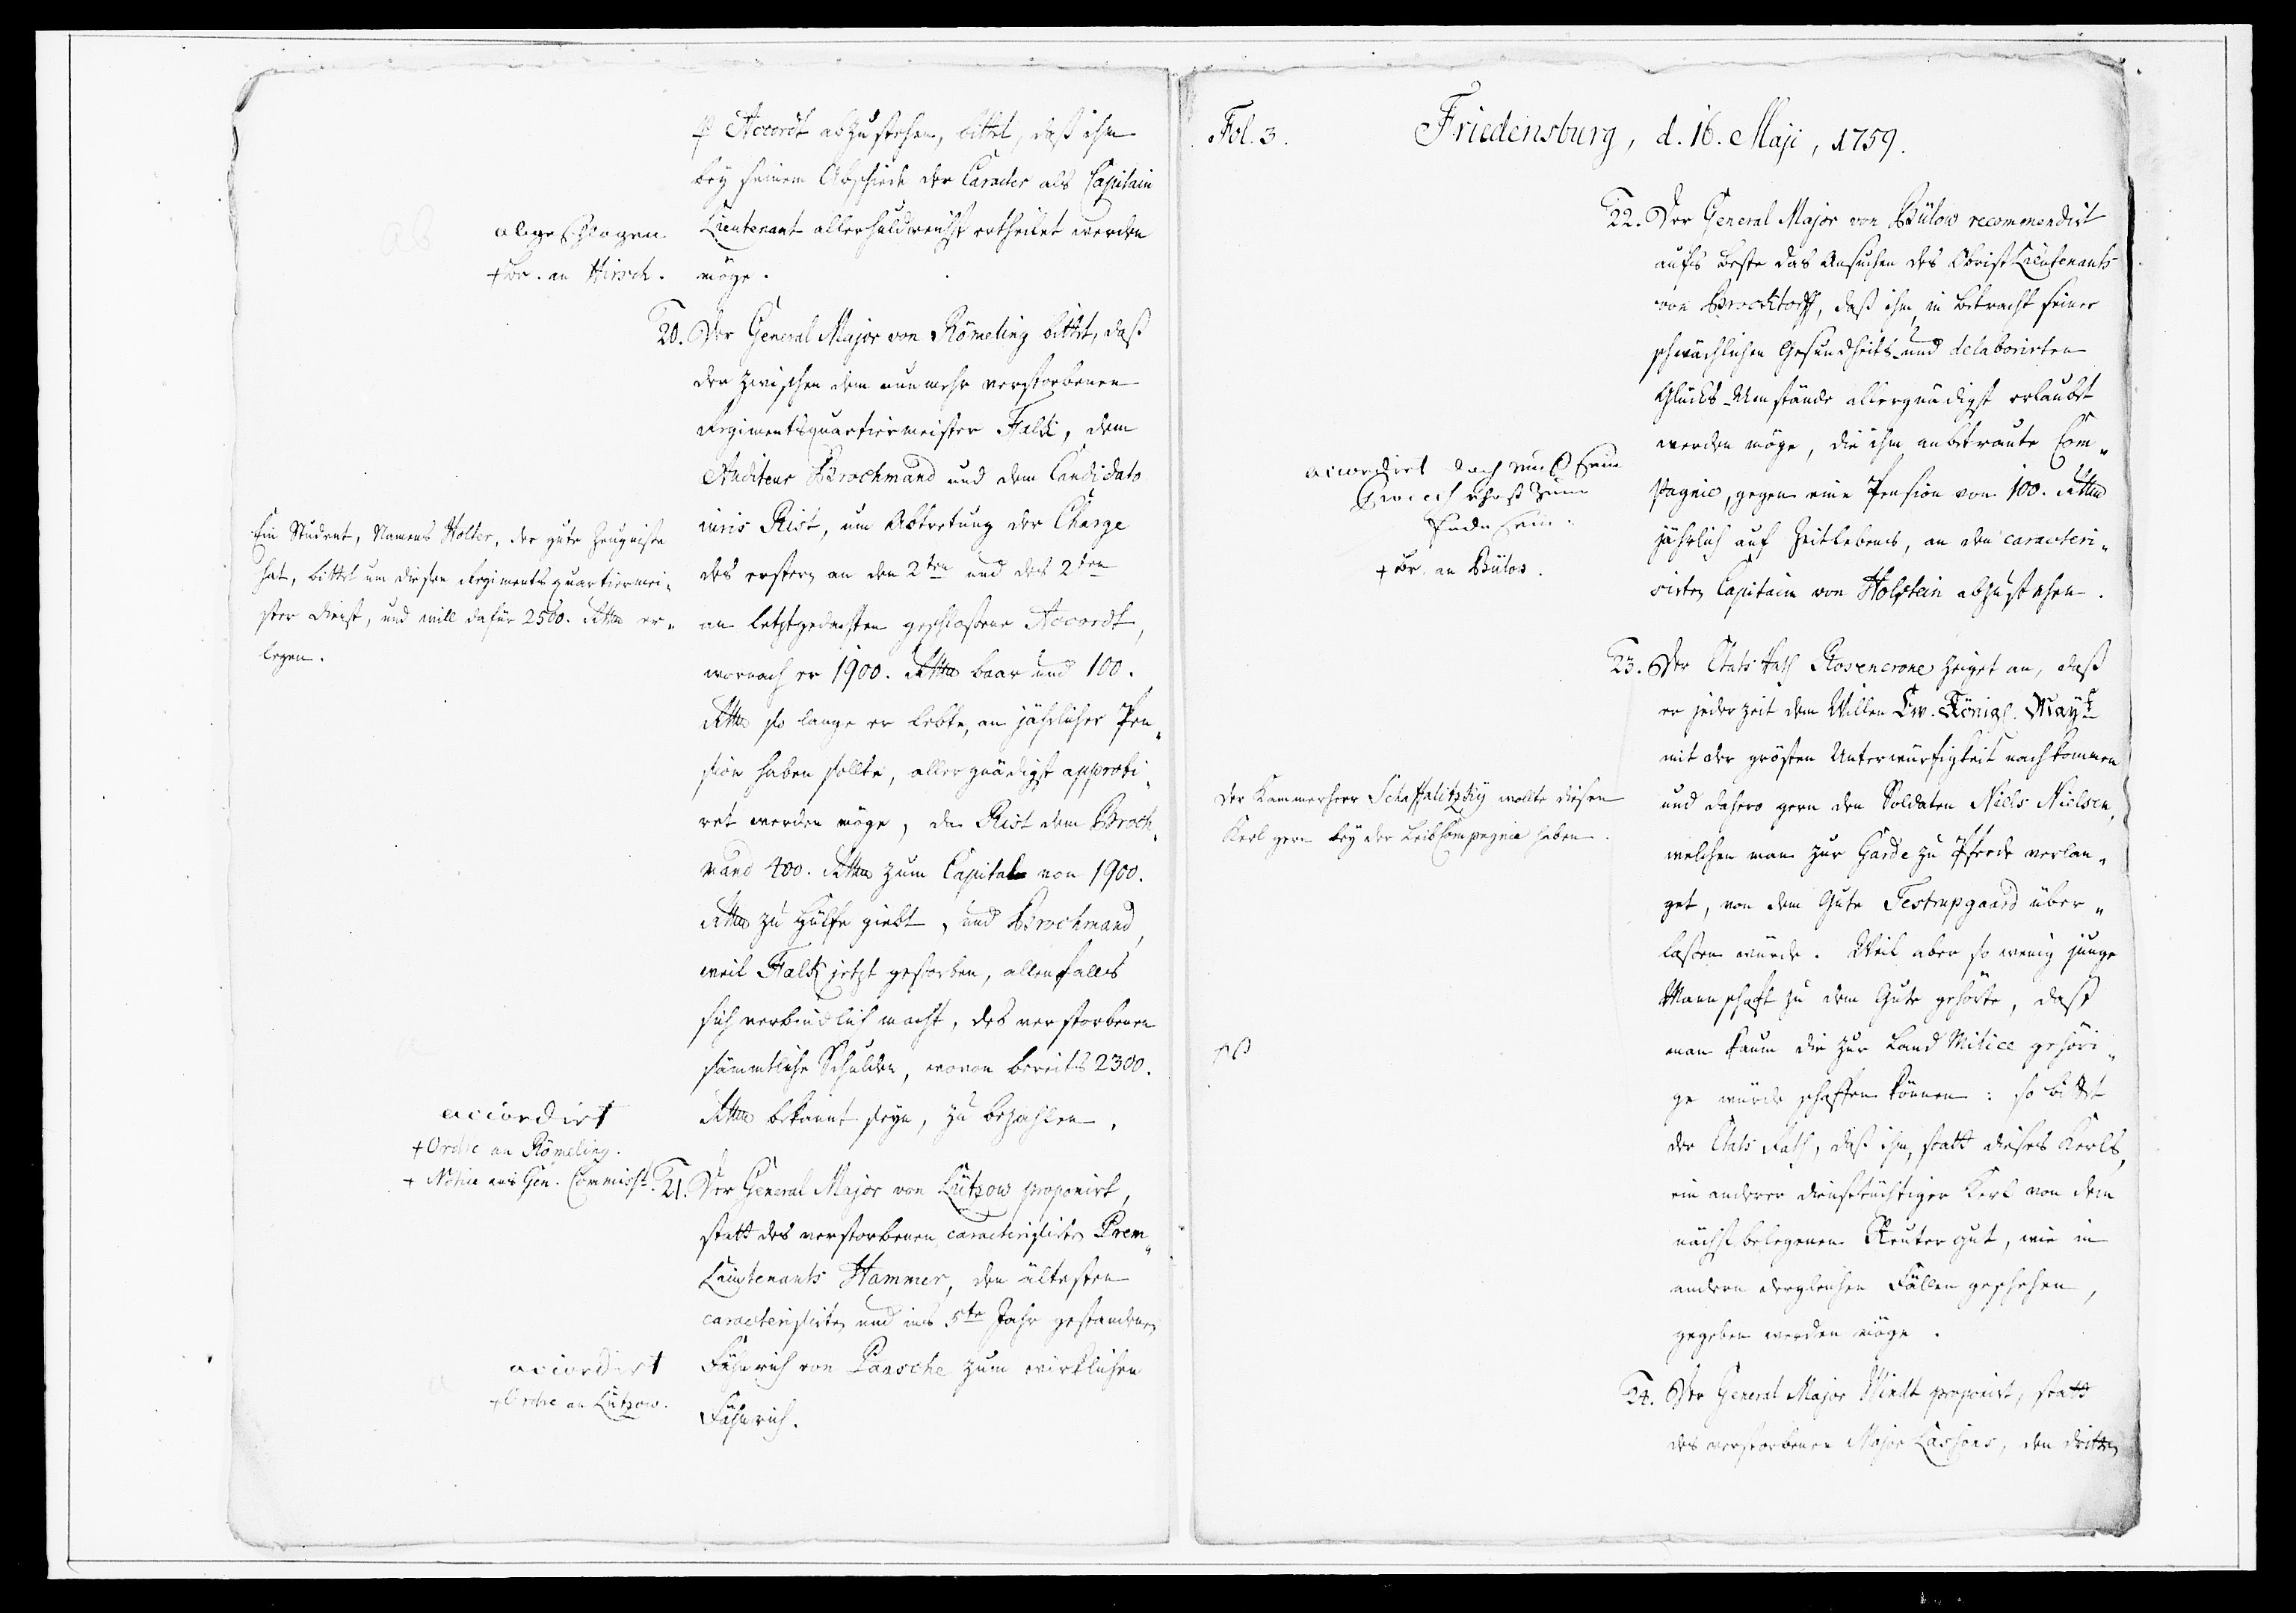 p Accordt abzustehen, bittet, daß ihm
bey seinem Abschiede der Caracter als Capitain
Lieutenant allerhuldreichst ertheilet werden
möge.
abgeschlagen
+ Br. an Hirsch.
20. Der General Major von Römeling bittet, daß
der zwischen dem nunmehr verstorbenen
Regimentsquartiermeister Falk, dem
Auditeur Brochmand und dem Candidato
iuris Rist, um Abtretung der Charge
des erstern an den 2ten und des 2ten
an letztgedachten geschloßene Accordt,
wornach er 1900. Rthlr baar und 100.
Rthlr so lange er lebte, an jährlicher Pen„
sion haben sollte, allergnädigst approbi„
ret werden möge, da Rist dem Broch„
mand 400. Rthlr zum Capital von 1900.
Rthlr zu Hülfe giebt, und Brochmand,
weil Falk jetzt gestorben, allenfalls
sich verbindlich macht, des verstorbenen
sämmtliche Schulden, wovon bereits 2300.
Rthlr bekannt seyn, zu bezahlen.
Ein Student, Namens Holter, der gute Zeugniße
hat, bittet um diesen Regimentsquartiermei„
ster Dienst, und will dafür 2500. Rthlr er„
legen.
accordirt
+ Ordre an Römeling.
+ Notice ans Gen. Commisst.
21. Der General Major von Lützow proponirt,
statt des verstorbenen caracterisirten Prem„
Lieutenants Hammer, den ältesten
caracterisirten und ins 5te Jahr gestandenen
Fähnrich von Paasche zum wirklichen
Fähnrich.
accordirt
+ Ordre an Lützow.
Fol. 3.
Friedensburg, d. 16. Maji, 1759.
22. Der General Major von Bülow recommendirt
aufs beste das Ansuchen des Obrist Lieutenants
von Brockdorff, daß ihm, in Betracht seiner
schwächlichen Gesundheits- und delaborirten
Glücks-Umstände allergnädigst erlaubt
werden möge, die ihm anbetraute Com„
pagnie, gegen eine Pension von 100. Rthlr
jährlich auf Zeitlebens, an den caracteri„
sirten Capitain von Holstein abzustehen.
accordirt doch muß sein
erst zum
Ende sein.
+ Br. an Bülow.
23. Der Etats Rath Rosencrone zeiget an, daß
er jederzeit dem Willen Ew. Königl. Mayt
mit der grösten Unterwürfigkeit nachkommen
und dahero gern den Soldaten Niels Nielsen,
welchen man zur Garde zu Pferde verlan„
get, von dem Gute Testrupgaard über„
laßen würde. Weil aber so wenig junge
Mannschaft zu dem Gute gehörte, daß
man kaum die zur Land Milice gehöri„
ge würde schaffen können: so bittet
der Etats Rath, daß ihm, statt dieses Kerls,
ein anderer diensttüchtiger Kerl von dem
nächst belegenen Reutergut, wie in
andern dergleichen Fällen geschehen,
gegeben werden möge.
Der Kammerherr Schaffalitzky wollte diesen
Kerl gern bey der Leib Compagnie haben.
24. Der General Major Windt proponirt, statt
des verstorbenen Major Lassons, den dritten